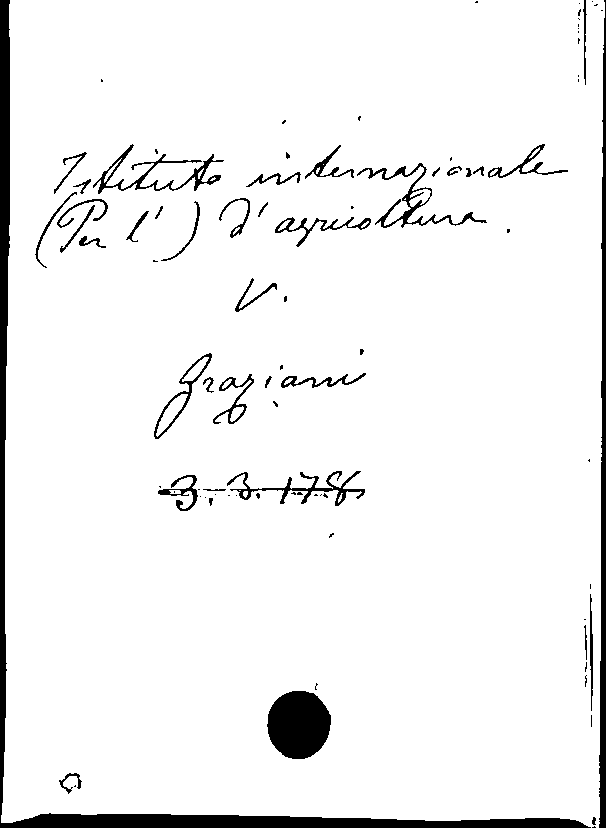 Istituto internazionale
(Per l') d'agricoltura.
V.
Graziani
3.3.178